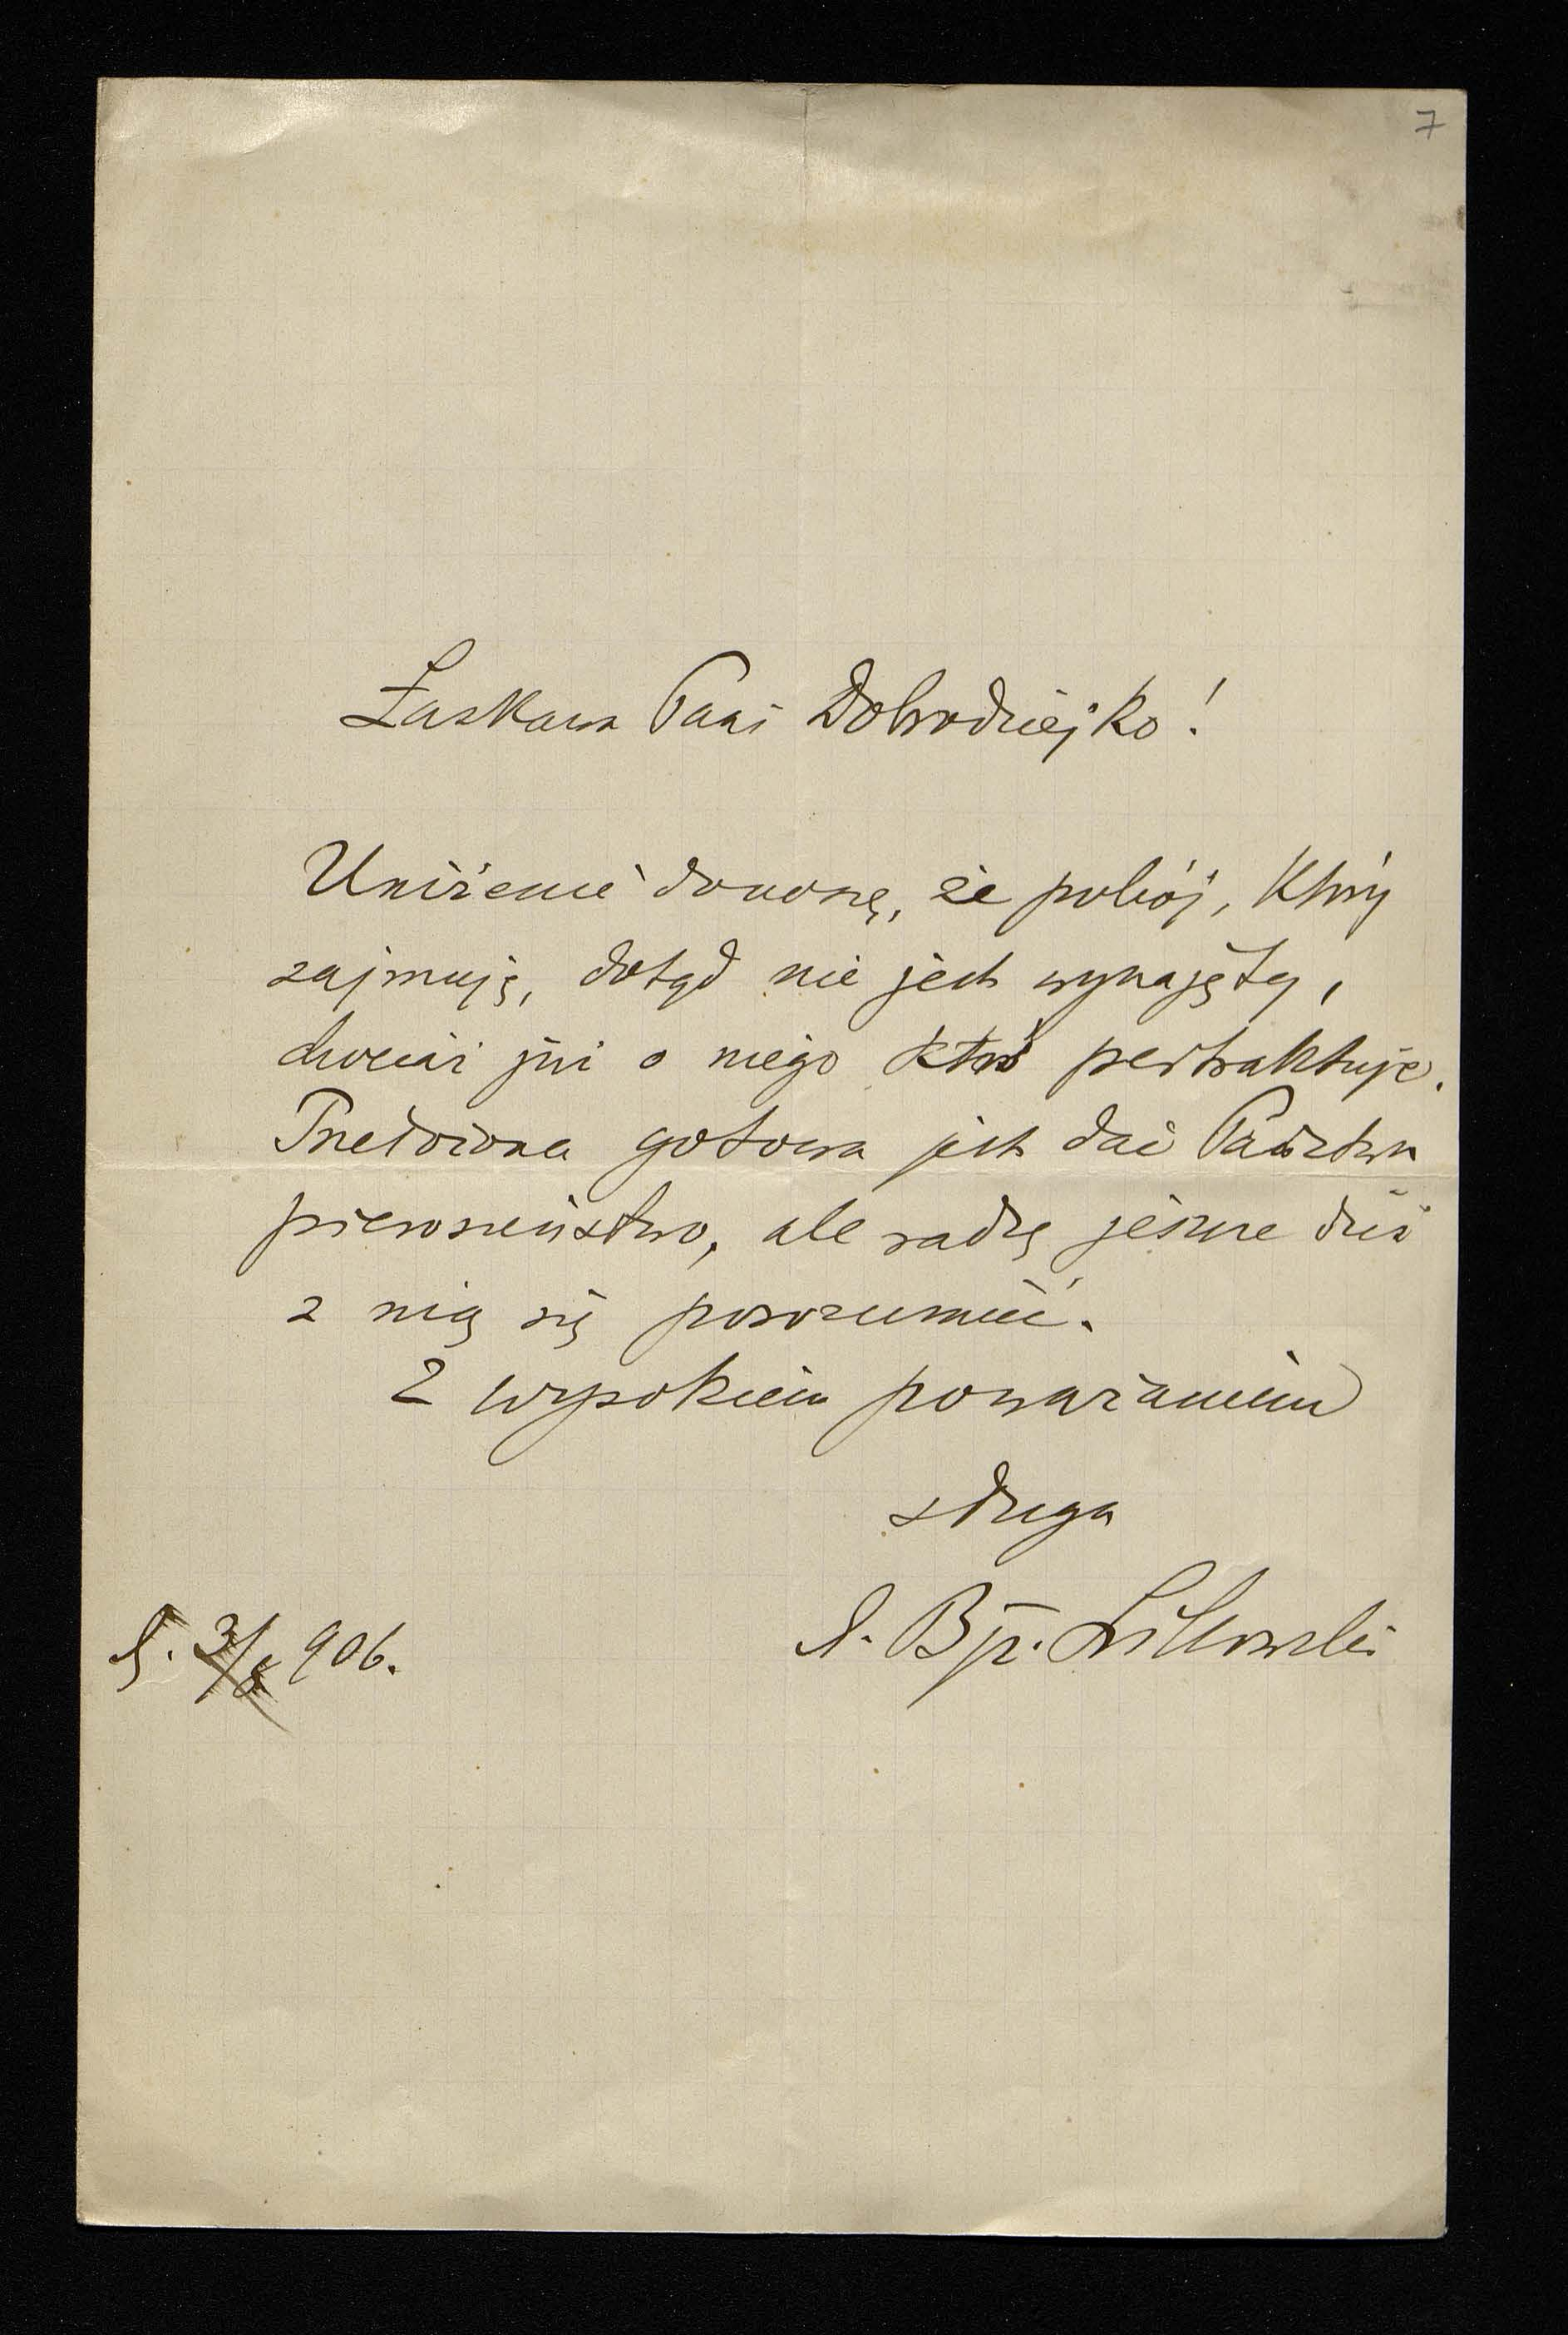 7
Łaskawa Pani Dobrodziejko!
Uniżenie donoszę, że pokój, który
zajmuję, dotąd nie jest wynajęty,
chociaż już o niego ktoś pertraktuje.
Przełożona gotowa jest dać Państwu
pierwszeństwo, ale radzę jeszcze dziś
z nią się porozumieć.
Z wysokiem poważaniem
sługa
Bp. Likowski
906.